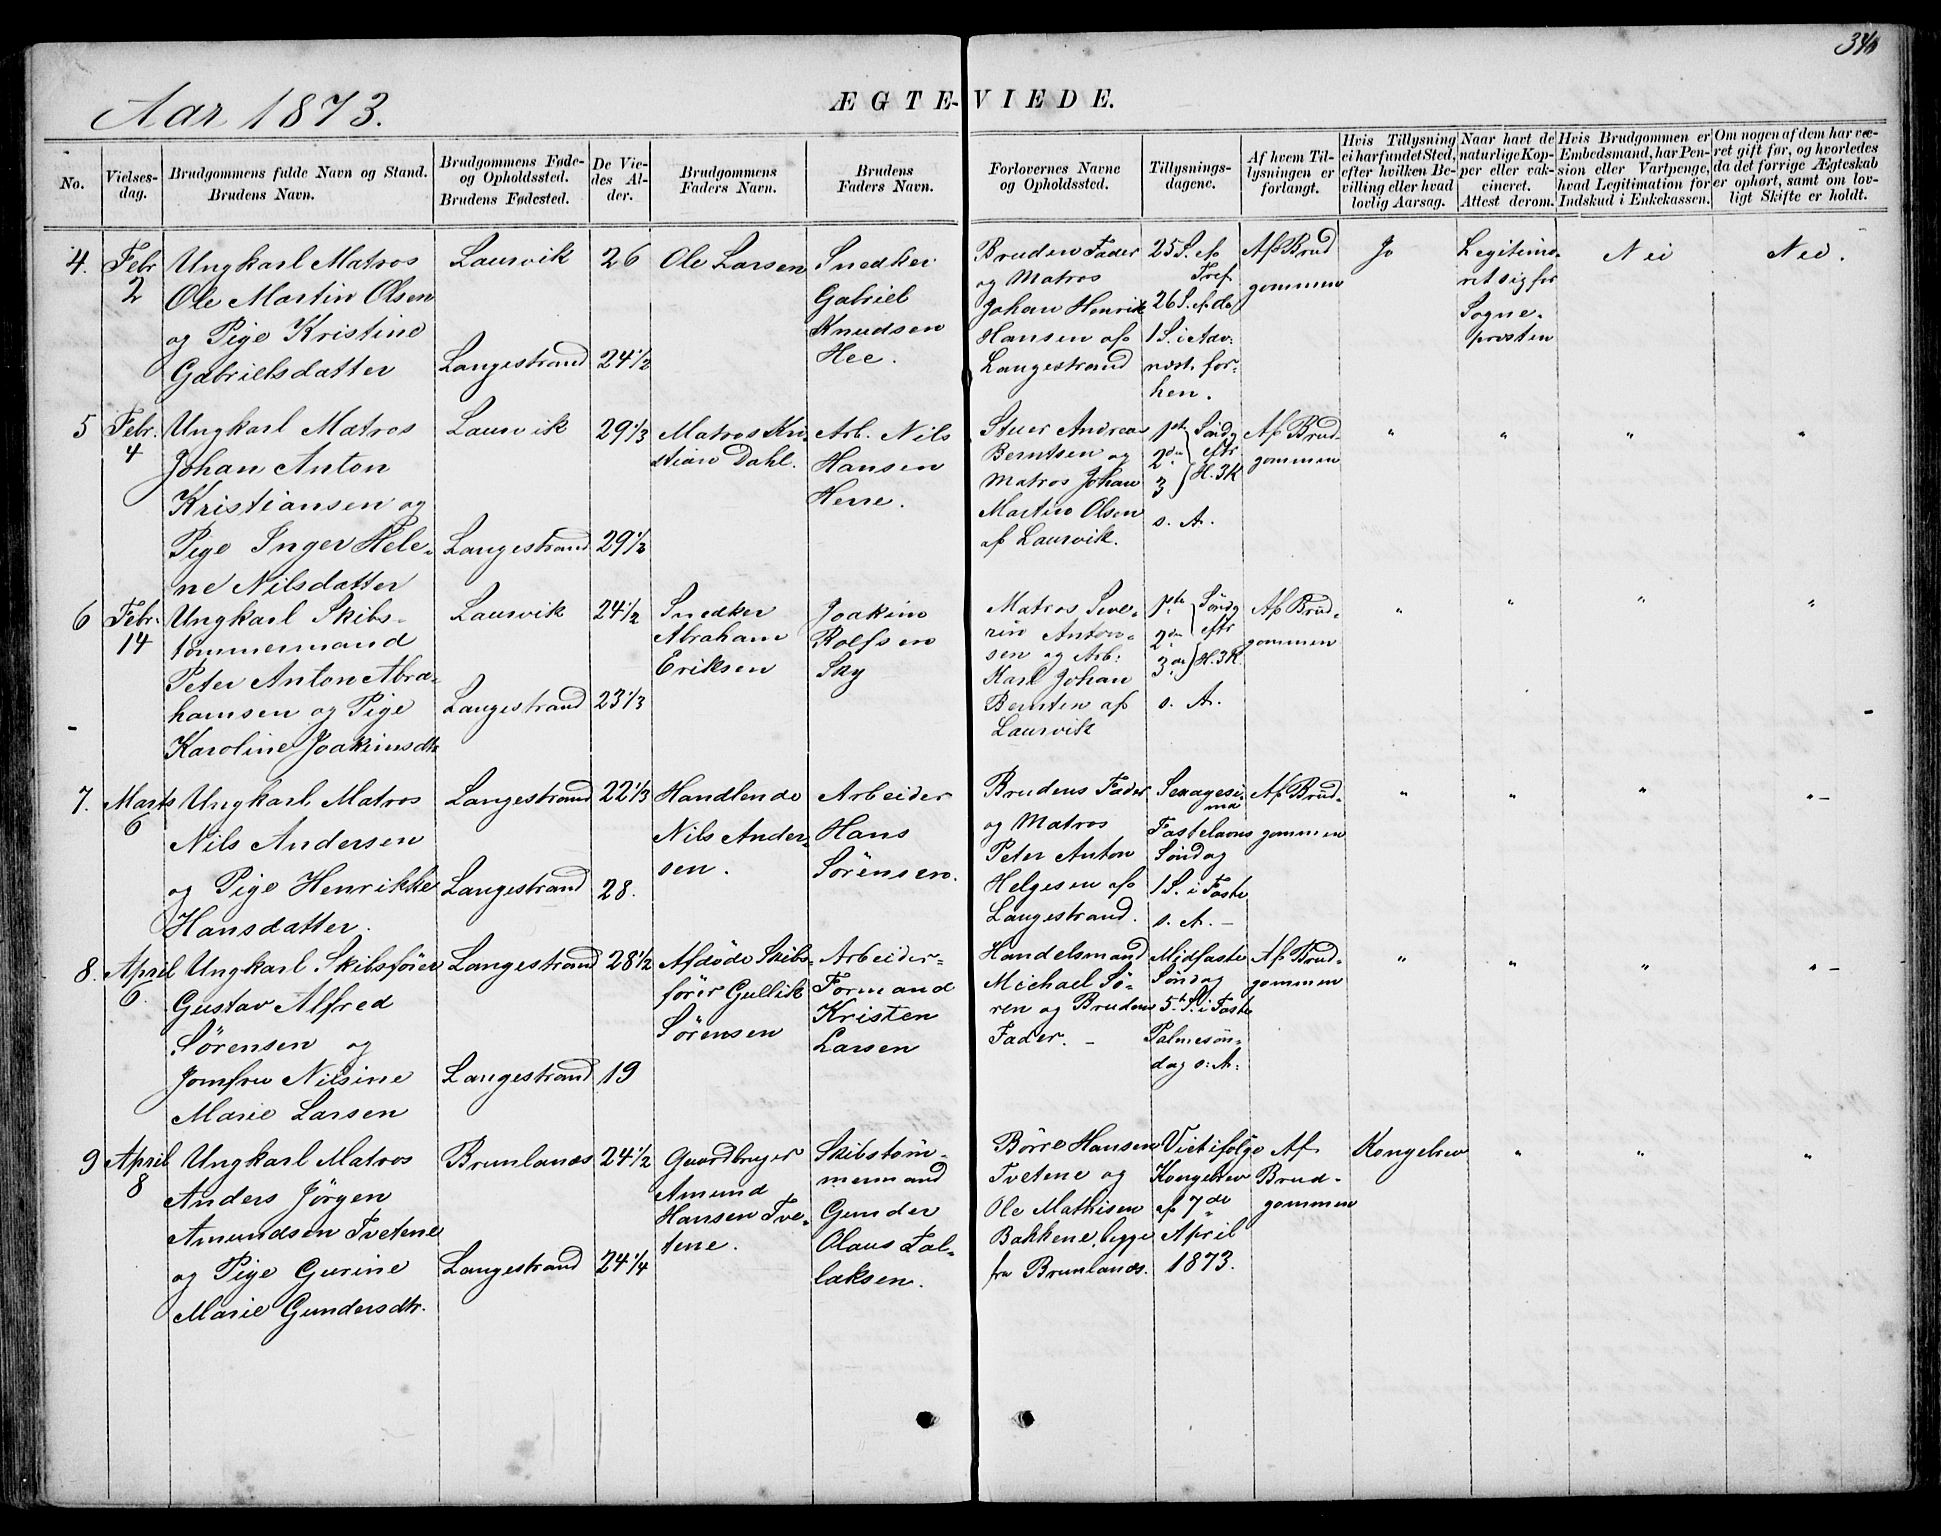 34
Aar 1873.
ÆGTE-VIEDE.
No.
Vielses-
dag.
Brudgommens fulde Navn og Stand.
Brudens Navn.
Brudgommens Føde-
og Opholdssted.
Brudens Fødested.
De Vie-
des Al-
der.
Brudgommens
Faders Navn.
Brudens
Faders Navn.
Forlovernes Navne
og Opholdssted.
Tillysnings-
dagene.
Af hvem Til-
lysningen er
forlangt.
Hvis Tillysning
ei har fundet Sted,
efter hvilken Be-
villing eller hvad
lovlig Aarsag.
Naar havt de
naturlige Kop-
per eller vak-
cineret.
Attest derom.
Hvis Brudgommen er
Embedsmand, har Pen-
sion eller Vartpenge,
hvad Legitimation for
Indskud i Enkekassen.
Om nogen af dem har væ-
ret gift før, og hvorledes
da det forrige Ægteskab
er ophørt, samt om lov-
ligt Skifte er holdt.
4.
Febr
2
Ungkarl Matros
Ole Martin Olsen
og Pige Kristine
Gabrielsdatter
Laurvik
Langestrand
26
24 1/2
Ole Larsen
Snedker
Gabriel
Knudsen
Hee.
Bruden Fader
og Matros
Johan Henrik
Hansen af
Langestrand
25 S. ef
Tref.
26 S. ef do
1 S. i Adv.
næst. for-
hen.
Af Brud
gommen
Jo
Legitime-
ret sig for
Sogne-
presten
Nei
Nei.
5
Febr.
4
Ungkarl Matros
Johan Anton
Kristiansen og
Pige Inger Hele-
ne Nilsdatter
Laurvik
Langestrand
29 1/3
29 1/2
Matros Kri-
stian Dahl.
Arb. Nils
Hansen
Herre.
Stuer Andreas
Berntsen og
Matros Johan
Martin Olsen
af Laurvik.
1ste
2den
3
Søndg
eftr
H. 3 K
s. A.
Af Brud-
gommen
"
"
"
"
6
Febr.
14
Ungkarl Skibs-
tømmermand
Peter Anton Abra-
hamsen og Pige
Karoline Joakimsdtr
Laurvik
Langestrand
24 1/2
23 1/3
Snedker
Abraham
Eriksen
Joakim
Rolfsen
Sky
Matros Seve-
rin Anton-
sen og Arb:
Karl Johan
Berntsen af
Laurvik
1ste
2den
3die
Søndg
eftr
H. 3 K.
s. A.
Af Brud-
gommen
"
"
"
"
7.
Marts
6
Ungkarl Matros
Nils Andersen
og Pige Henrikke
Hansdatter.
Langestrand
Langestrand
22 1/3
28.
Handlende
Nils Ander-
sen.
Arbeider
Hans
Sørensen.
Brudens Fader
og Matros
Peter Anton
Helgesen af
Langestrand.
Sexagesi-
ma
Fastelavns
Søndag
1 S. i Faste
s. A. -
Af Brud-
gommen
"
"
"
" -
8.
April
6.
Ungkarl Skibsfører
Gustav Alfred
Sørensen og
Jomfru Nilsine
Marie Larsen
Langestrand
Langestrand
28 1/2
19
Afdøde Skibs-
fører Gullik
Sørensen
Arbeider-
Formand
Kristen
Larsen
Handelsmand
Michael Sø-
ren og Brudens
Fader. -
Midfaste
Søndag
5te S. i Faste
Palmesøn-
dag s: A:
Af Brud-
gommen
"
"
"
" -
9
April
8
Ungkarl Matros
Anders Jörgen
Amundsen Tvetene
og Pige Gurine
Marie Gundersdtr.
Brunlanæs
Langestrand
24 1/2
24 1/4
Gaardbruger
Amund
Hansen Tve-
tene.
Skibstøm-
mermand
Gunder
Olaus Tal-
laksen.
Börre Hansen
Tvetene og
Ole Mathisen
Bakkene, begge
fra Brunlanæs.
Viet ifølge
Kongebrev
af 7de
April
1873.
Af
Brud-
gommen
Kongebrev
"
"
"